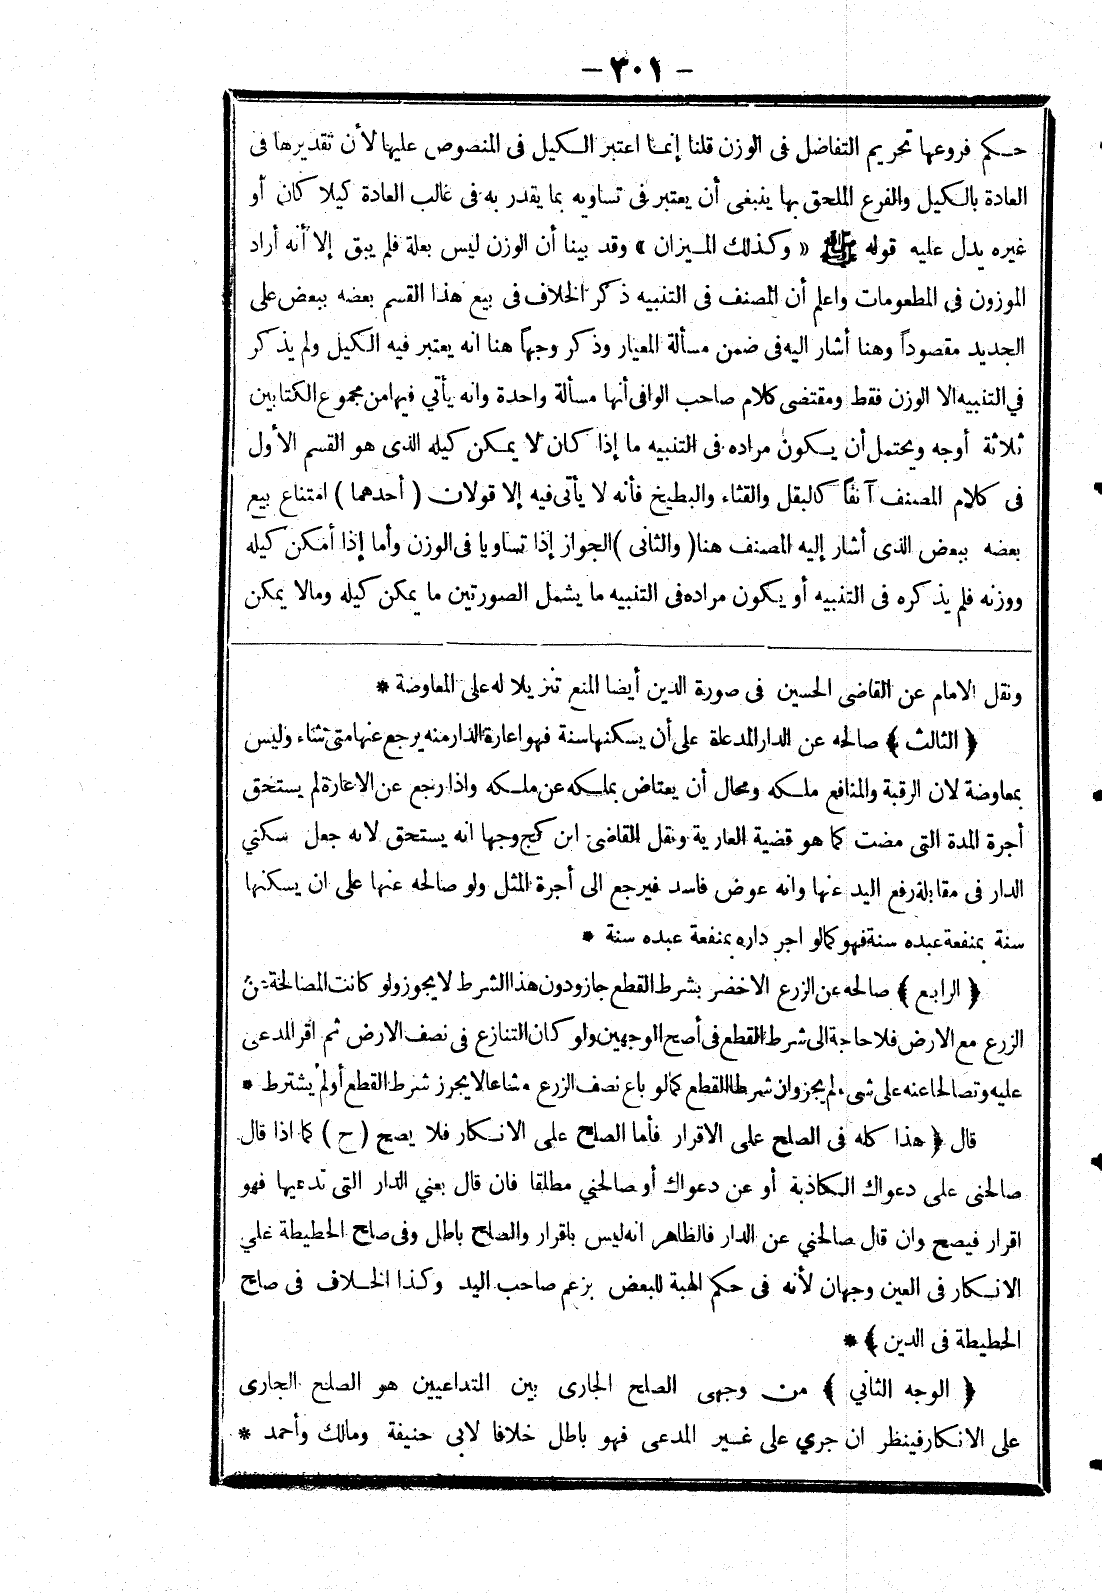 - ٣٠١ -
حكم فروعها تحريم التفاضل فى الوزن قلنا إنما اعتبر الكيل فى المنصوص عليها لأن تقديرها فى
العادة بالكيل والفرع الملحق بها ينبغى أن يعتبر فى تساويه بما يقدر به فى غالب العادة كيلا كان أو
غيره يدل عليه قوله ﷺ « وكذلك الميزان » وقد بينا أن الوزن ليس بعلة فلم يبق إلا أنه أراد
الموزون فى المطعومات واعلم أن المصنف فى التنبيه ذكر الخلاف فى بيع هذا القسم بعضه ببعض على
الجديد مقصوداً وهنا أشار اليه فى ضمن مسألة المعيار وذكر وجهاً هنا انه يعتبر فيه الكيل ولم يذكر
في التنبيه الا الوزن فقط ومقتضى كلام صاحب الوافى أنها مسألة واحدة وانه يأتي فيها من مجموع الكتابين
ثلاثة أوجه ويحتمل أن يكون مراده فى التنبيه ما إذا كان لا يمكن كيله الذى هو القسم الأول
فى كلام المصنف آنفاً كالبقل والقثاء والبطيخ فأنه لا يأتى فيه إلا قولان ( أحدهما ) امتناع بيع
بعضه ببعض الذى أشار إليه المصنف هنا ( والثانى ) الجواز إذا تساويا فى الوزن وأما إذا أمكن كيله
ووزنه فلم يذكره فى التنبيه أو يكون مراده فى التنبيه ما يشمل الصورتين ما يمكن كيله ومالا يمكن
ونقل الامام عن القاضى الحسين فى صورة الدين أيضا المنع تنزيلا له على المعاوضة *
﴿ الثالث ﴾ صالحه عن الدار المدعاة على أن يسكنها سنة فهو اعارة الدار منه يرجع عنها متى شاء وليس
بمعاوضة لان الرقبة والمنافع ملكه ومحال أن يعتاض بملكه عن ملكه واذا رجع عن الاعارة لم يستحق
أجرة المدة التى مضت كما هو قضية العارية ونقل القاضى ابن كج وجها انه يستحق لانه جعل سكني
الدار فى مقابلة رفع اليد عنها وانه عوض فاسد فيرجع الى أجرة المثل ولو صالحه عنها على ان يسكنها
سنة بمنفعة عبده سنة فهو كما لو اجر داره بمنفعة عبده سنة *
﴿ الرابع ﴾ صالحه عن الزرع الاخضر بشرط القطع جاز ودون هذا الشرط لا يجوز ولو كانت المصالحة عن
الزرع مع الارض فلا حاجة الى شرط القطع فى أصح الوجهين ولو كان التنازع فى نصف الارض ثم اقر المدعى
عليه وتصالحا عنه على شىء لم يجز وان شرطا القطع كما لو باع نصف الزرع مشاعا لا يجوز شرط القطع أولم يشترط *
قال ﴿ هذا كله فى الصلح على الاقرار فأما الصلح على الانكار فلا يصح ( ح ) كما اذا قال
صالحنى على دعواك الكاذبة أو عن دعواك أو صالحني مطلقا فان قال بعني الدار التى تدعيها فهو
اقرار فيصح وان قال صالحني عن الدار فالظاهر انه ليس باقرار والصلح باطل وفى صلح الحطيطة علي
الانكار فى العين وجهان لأنه فى حكم الهبة للبعض بزعم صاحب اليد وكذا الخلاف فى صلح
الحطيطة فى الدين ﴾ *
﴿ الوجه الثاني ﴾ من وجهى الصلح الجارى بين المتداعيين هو الصلح الجارى
على الانكار فينظر ان جري على غير المدعى فهو باطل خلافا لابى حنيفة ومالك وأحمد *